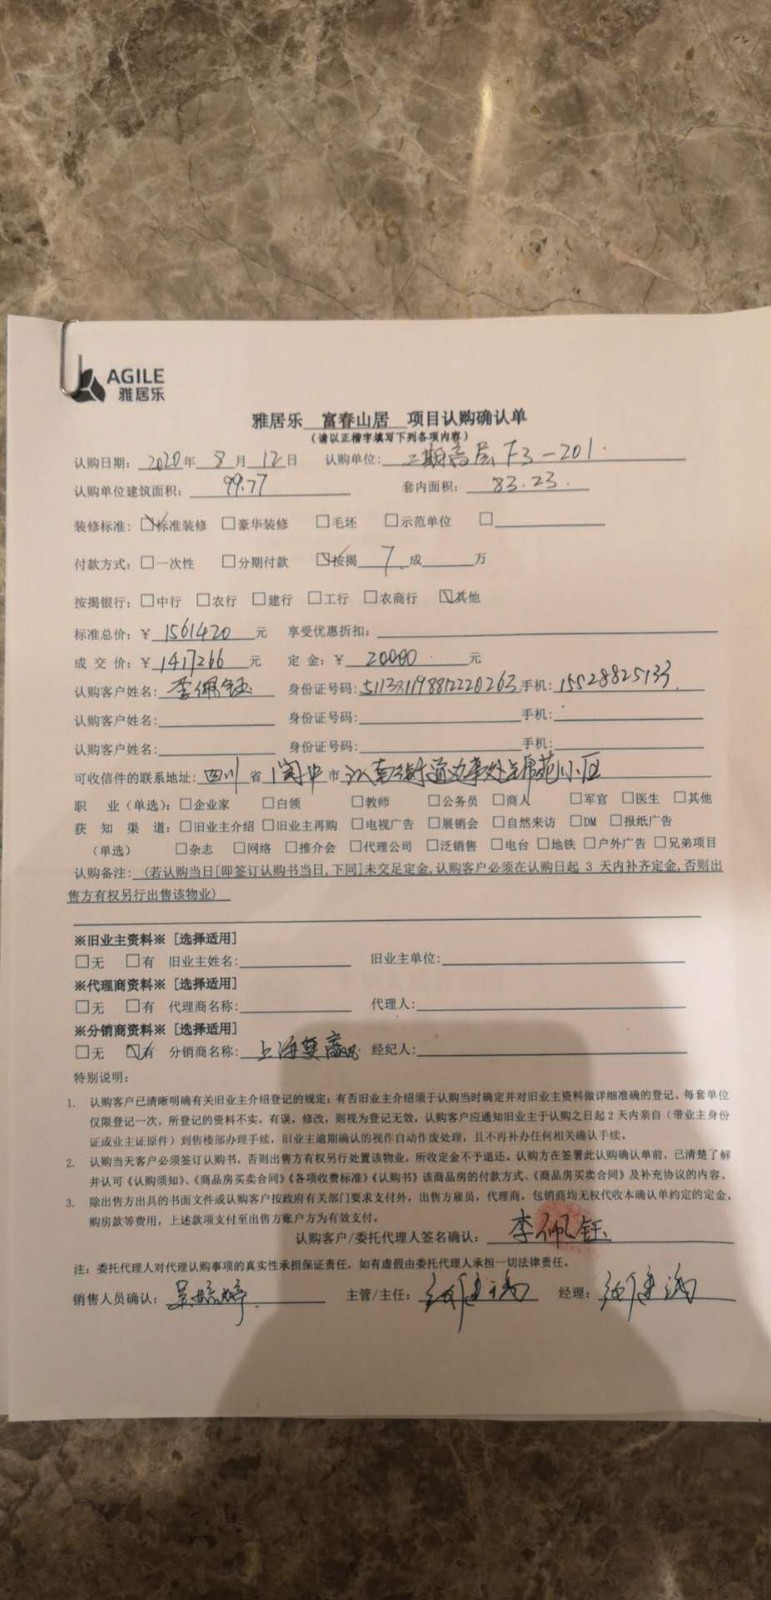 AGILE
雅居乐
雅居乐 富春山居 项目认购确认单
(请以正楷字填写下列各项内容)
认购日期: 2020年 8 月 12日 认购单位: 二期高层 F3-201.
认购单位建筑面积: 99.77 套内面积: 83.23.
装修标准: ☑标准装修 □豪华装修 □毛坯 □示范单位 □
付款方式: □一次性 □分期付款 ☑按揭 7 成 万
按揭银行: □中行 □农行 □建行 □工行 □农商行 ☑其他
标准总价: ¥ 1561420 元 享受优惠折扣:
成 交 价: ¥ 1417266 元 定 金: ¥ 20000 元
认购客户姓名: 李佩钰 身份证号码: 手机: 15528825133
认购客户姓名: 身份证号码: 手机:
认购客户姓名: 身份证号码: 手机:
可收信件的联系地址: 四川 省 阆中 市 江南街道办事处 小区
职 业(单选): □企业家 □白领 □教师 □公务员 □商人 □军官 □医生 □其他
获 知 渠 道: □旧业主介绍 □旧业主再购 □电视广告 □展销会 □自然来访 □DM □报纸广告
(单选) □杂志 □网络 □推介会 □代理公司 □泛销售 □电台 □地铁 □户外广告 □兄弟项目
认购备注: (若认购当日[即签订认购书当日,下同]未交足定金,认购客户必须在认购日起 3 天内补齐定金,否则出
售方有权另行出售该物业)
※旧业主资料※ [选择适用]
□无 □有 旧业主姓名: 旧业主单位:
※代理商资料※ [选择适用]
□无 □有 代理商名称: 代理人:
※分销商资料※ [选择适用]
□无 ☑有 分销商名称: 上海 经纪人:
特别说明:
1. 认购客户已清晰明确有关旧业主介绍登记的规定: 有否旧业主介绍须于认购当时确定并对旧业主资料做详细准确的登记。每套单位
仅限登记一次, 所登记的资料不实, 有误, 修改, 则视为登记无效, 认购客户应通知旧业主于认购之日起 2 天内亲自 (带业主身份
证或业主证原件) 到售楼部办理手续, 旧业主逾期确认的视作自动作废处理, 且不再补办任何相关确认手续。
2. 认购当天客户必须签订认购书, 否则出售方有权另行处置该物业, 所收定金不予退还。认购方在签署此认购确认单前, 已清楚了解
并认可《认购须知》、《商品房买卖合同》《各项收费标准》《认购书》该商品房的付款方式、《商品房买卖合同》及补充协议的内容。
3. 除出售方出具的书面文件或认购客户按政府有关部门要求支付外, 出售方雇员, 代理商, 包销商均无权代收本确认单约定的定金,
购房款等费用, 上述款项支付至出售方账户方为有效支付。
认购客户/委托代理人签名确认: 李佩钰
注: 委托代理人对代理认购事项的真实性承担保证责任, 如有虚假由委托代理人承担一切法律责任。
销售人员确认: 主管/主任: 经理: